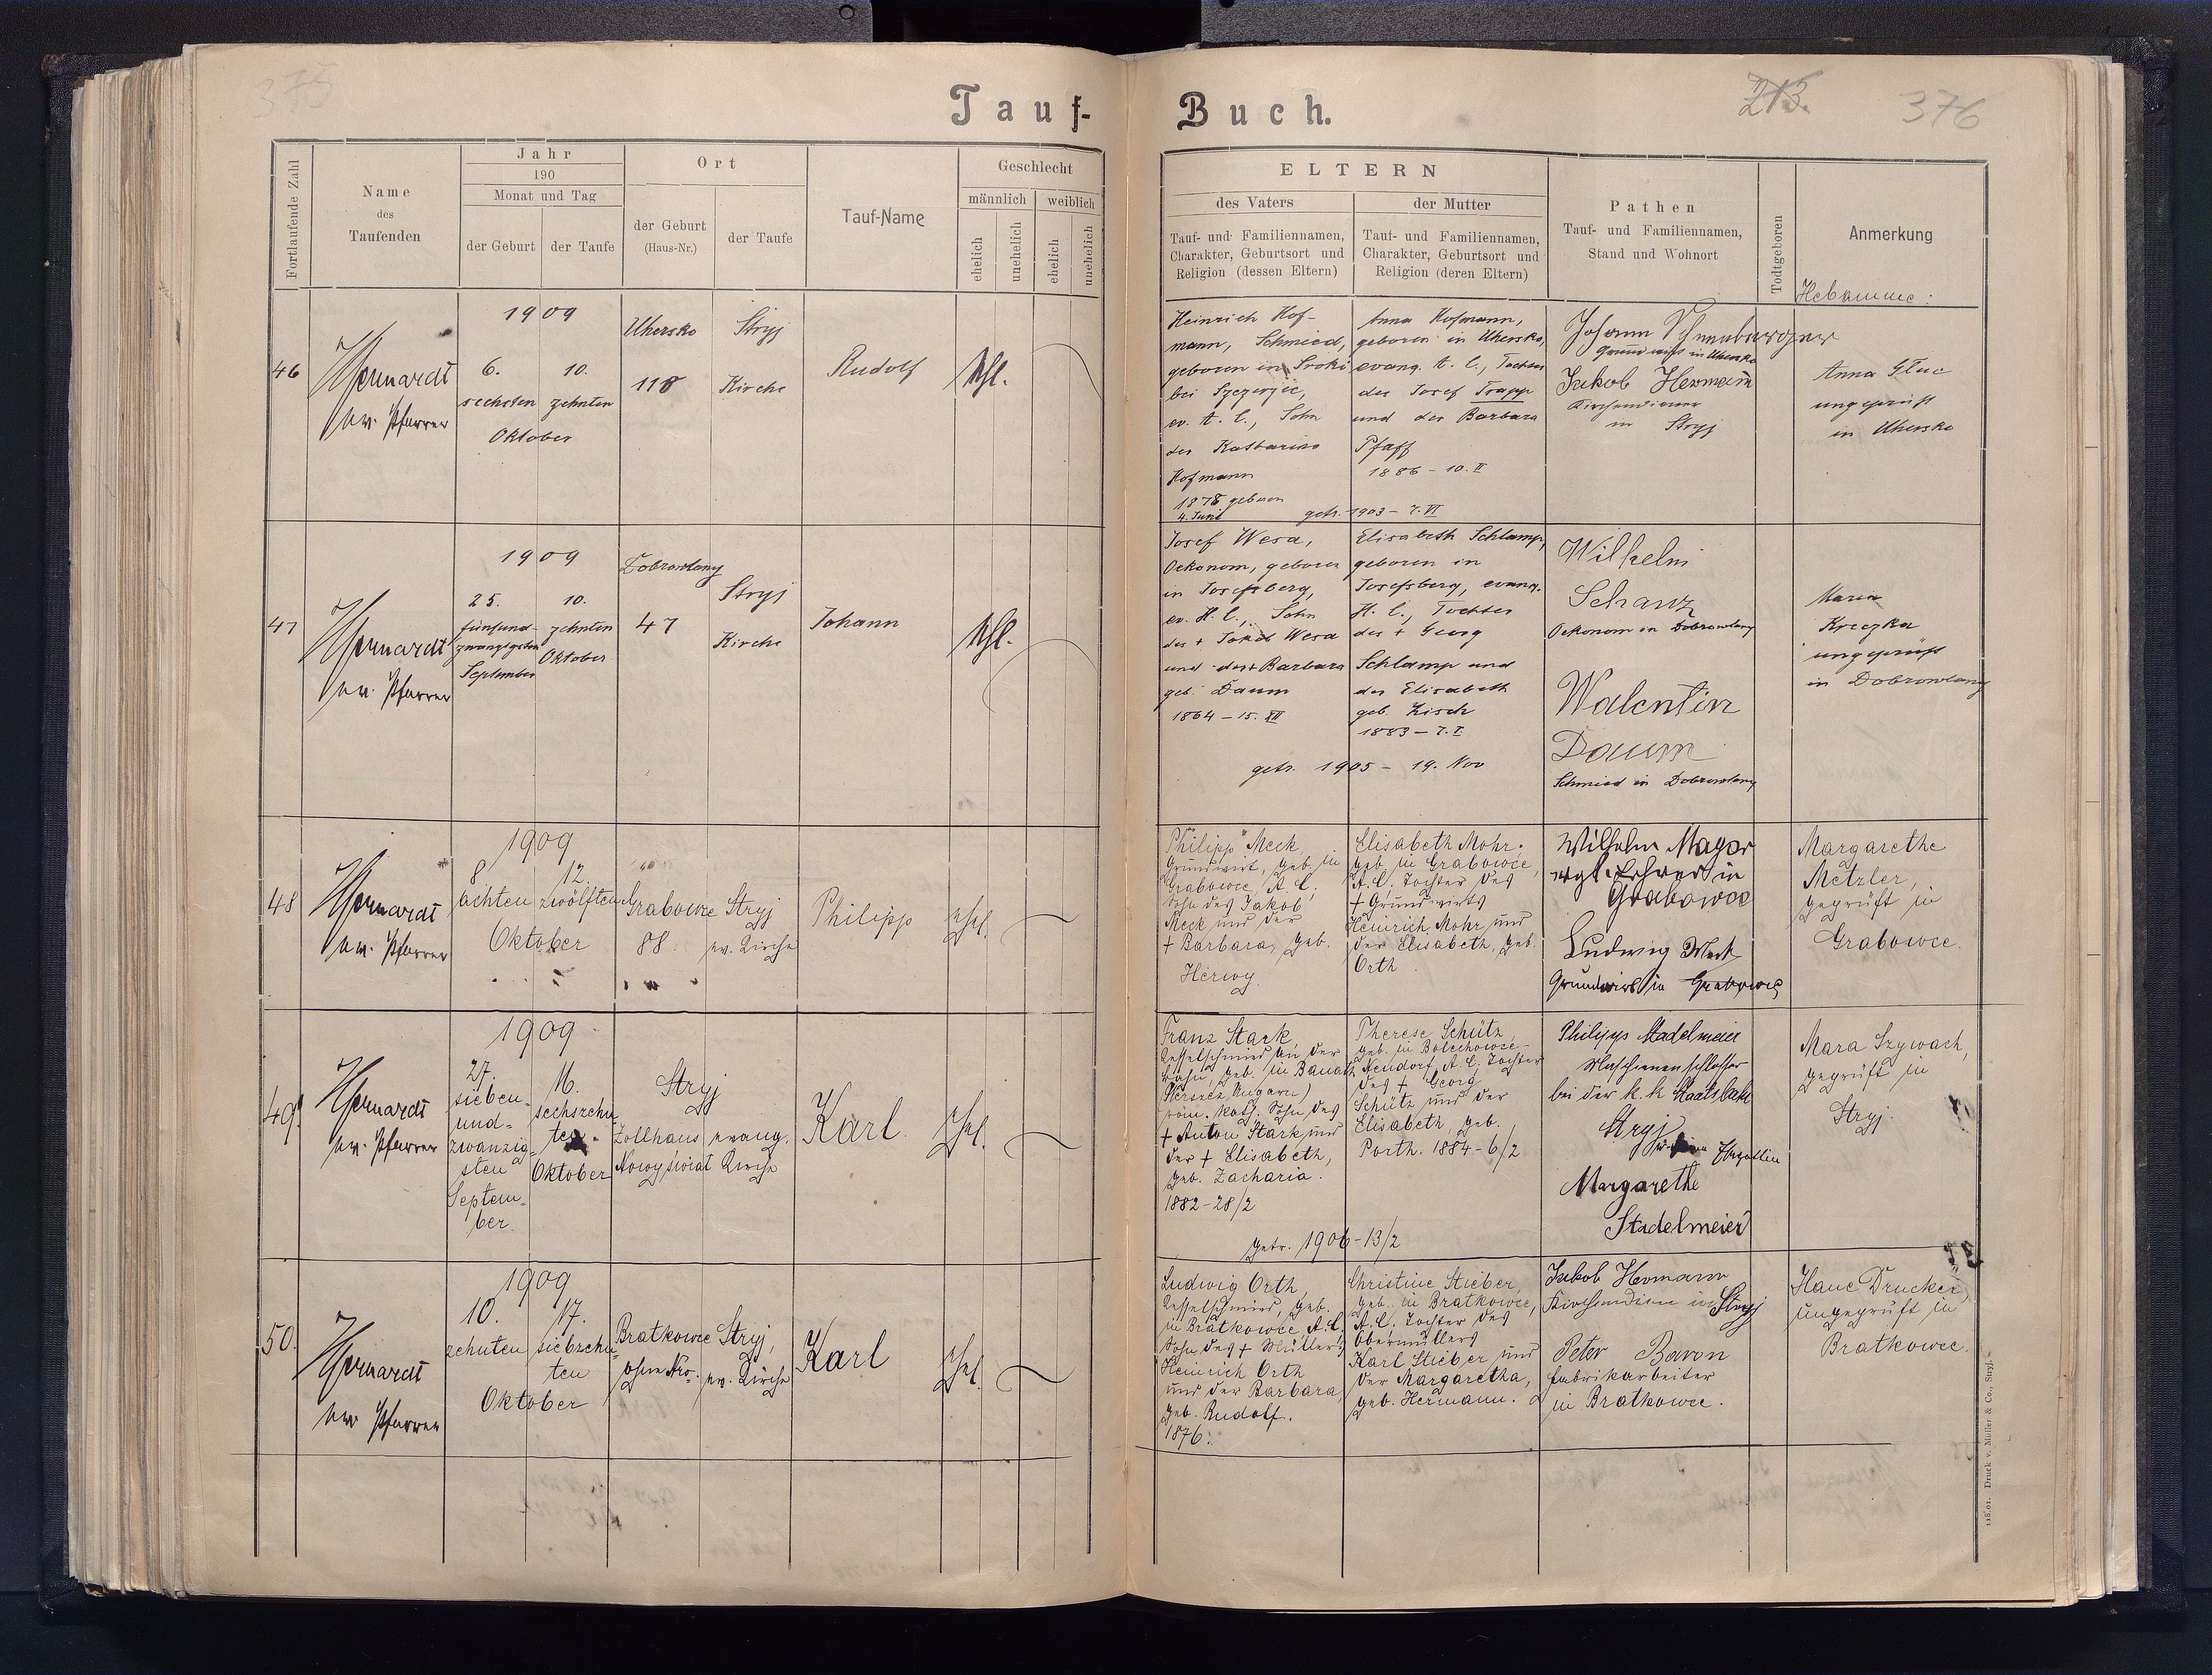 375
Tauf-
Buch.
213.
376
Fortlaufende Zahl
Name
des
Taufenden
Jahr
190
Monat und Tag
der Geburt
der Taufe
Ort
der Geburt
(Haus-Nr.)
der Taufe
Tauf-Name
Geschlecht
männlich
weiblich
ehelich
unehelich
ehelich
unehelich
ELTERN
des Vaters
der Mutter
Tauf- und Familiennamen,
Charakter, Geburtsort und
Religion (dessen Eltern)
Tauf- und Familiennamen,
Charakter, Geburtsort und
Religion (deren Eltern)
Pathen
Tauf- und Familiennamen,
Stand und Wohnort
Todtgeboren
Anmerkung
Hebamme:
46
ev. Pfarrer
1909
6.
sechsten
10.
zehnten
Oktober
Uhersko
118
Stryj
Kirche
Rudolf
ehl.
Heinrich Hof-
mann, Schmied,
geboren in Sroki
bei Szczerzec,
ev. A. C., Sohn
der Katharina
Hofmann
1878 geboren
4. Juni
Anna Hofmann,
geboren in Uhersko,
evang. A. C., Tochter
des Josef Trapp
und der Barbara
Pfaff
1886 - 10. II
getr. 1903 - 7. VI
Johann
Grundwirt in Uhersko
Jakob Hermann
Kirchendiener
in Stryj
Anna
ungeprüft
in Uhersko
47
ev. Pfarrer
1909
25.
fünfund-
zwanzigsten
September
10.
zehnten
Oktober
Dobrowlany
47
Stryj
Kirche
Johann
ehl.
Josef Wesa,
Oekonom, geboren
in Josefsberg,
ev. H. C., Sohn
des + Jakob Wesa
und der + Barbara
geb. Daum
1864 - 15. XII
Elisabeth Schlamp,
geboren in
Josefsberg, evang.
H. C., Tochter
des + Georg
Schlamp und
der Elisabeth
geb. Kisch
1883 - 7. I.
getr. 1905 - 19. Nov
Wilhelm
Schanz
Oekonom in Dobrowlany
Walentin
Daum
Schmied in Dobrowlany
Maria
Kreczka
ungeprüft
in Dobrowlany
48
ev. Pfarrer
1909
8
achten
12.
zwölften
Oktober
Grabowce
88.
Stryj
ev. Kirche
Philipp
ehel.
Philipp Meck
Grundwirt, geb. in
Grabowce, A. C.,
Sohn des Jakob
Meck und der
+ Barbara, geb.
Herwy
Elisabeth Mohr.
geb. in Grabowce,
A. C. Tochter des
+ Grundwirts
Heinrich Mohr und
der Elisabeth, geb.
Orth
Wilhelm Mayer
Lehrer in
Grabowce
Ludwig
Grundwirt in Grabowce
Margarethe
Metzler,
geprüft in
Grabowce.
49.
ev. Pfarrer
1909
27.
sieben-
und-
zwanzig-
sten
Septem-
ber.
16.
sechszehn-
ten
Oktober
Stryj
Zollhaus
Nowy świat
evang.
Kirche
Karl.
ehel.
Franz Stark,
Kesselschmied an der
Bahn, geb. in Banat
röm. kath. Sohn des
+ Anton Stark und
der + Elisabeth,
geb. Zacharia.
1882 - 28/2
Therese Schütz,
geb. in Bolechowse-
Neudorf, A. C. Tochter
des + Georg
Schütz und der
Elisabeth, geb.
Porth. 1884 - 6/2
getr. 1906 - 13/2
Philipp Stadelmeier
Maschienenschlosser
bei der k. k. Staatsbahn
Stryj
Margarethe
Stadelmeier
Mara Szywach,
geprüft in
Stryj.
50.
ev. Pfarrer
1909
10.
zehnten
17.
siebzehn-
ten
Oktober
Bratkowce
ohne Nro.
Stryj,
ev. Kirche
Karl
ehel.
Ludwig Orth
Kesselschmied, geb.
in Bratkowce, A. C.
Sohn des + Müllers
Heinrich Orth
und der Barbara,
geb. Rudolf.
1876.
Christine Stieber,
geb. in Bratkowce,
A. C. Tochter des
Obermüllers
Karl Stieber und
der Margaretha,
geb. Hermann.
Jakob Hermann
Kirchendiener in Stryj
Peter Baron
Fabrikarbeiter
in Bratkowce.
Hane Drucker,
ungeprüft in
Bratkowce.
Druck v. Müller & Co., Stryj.